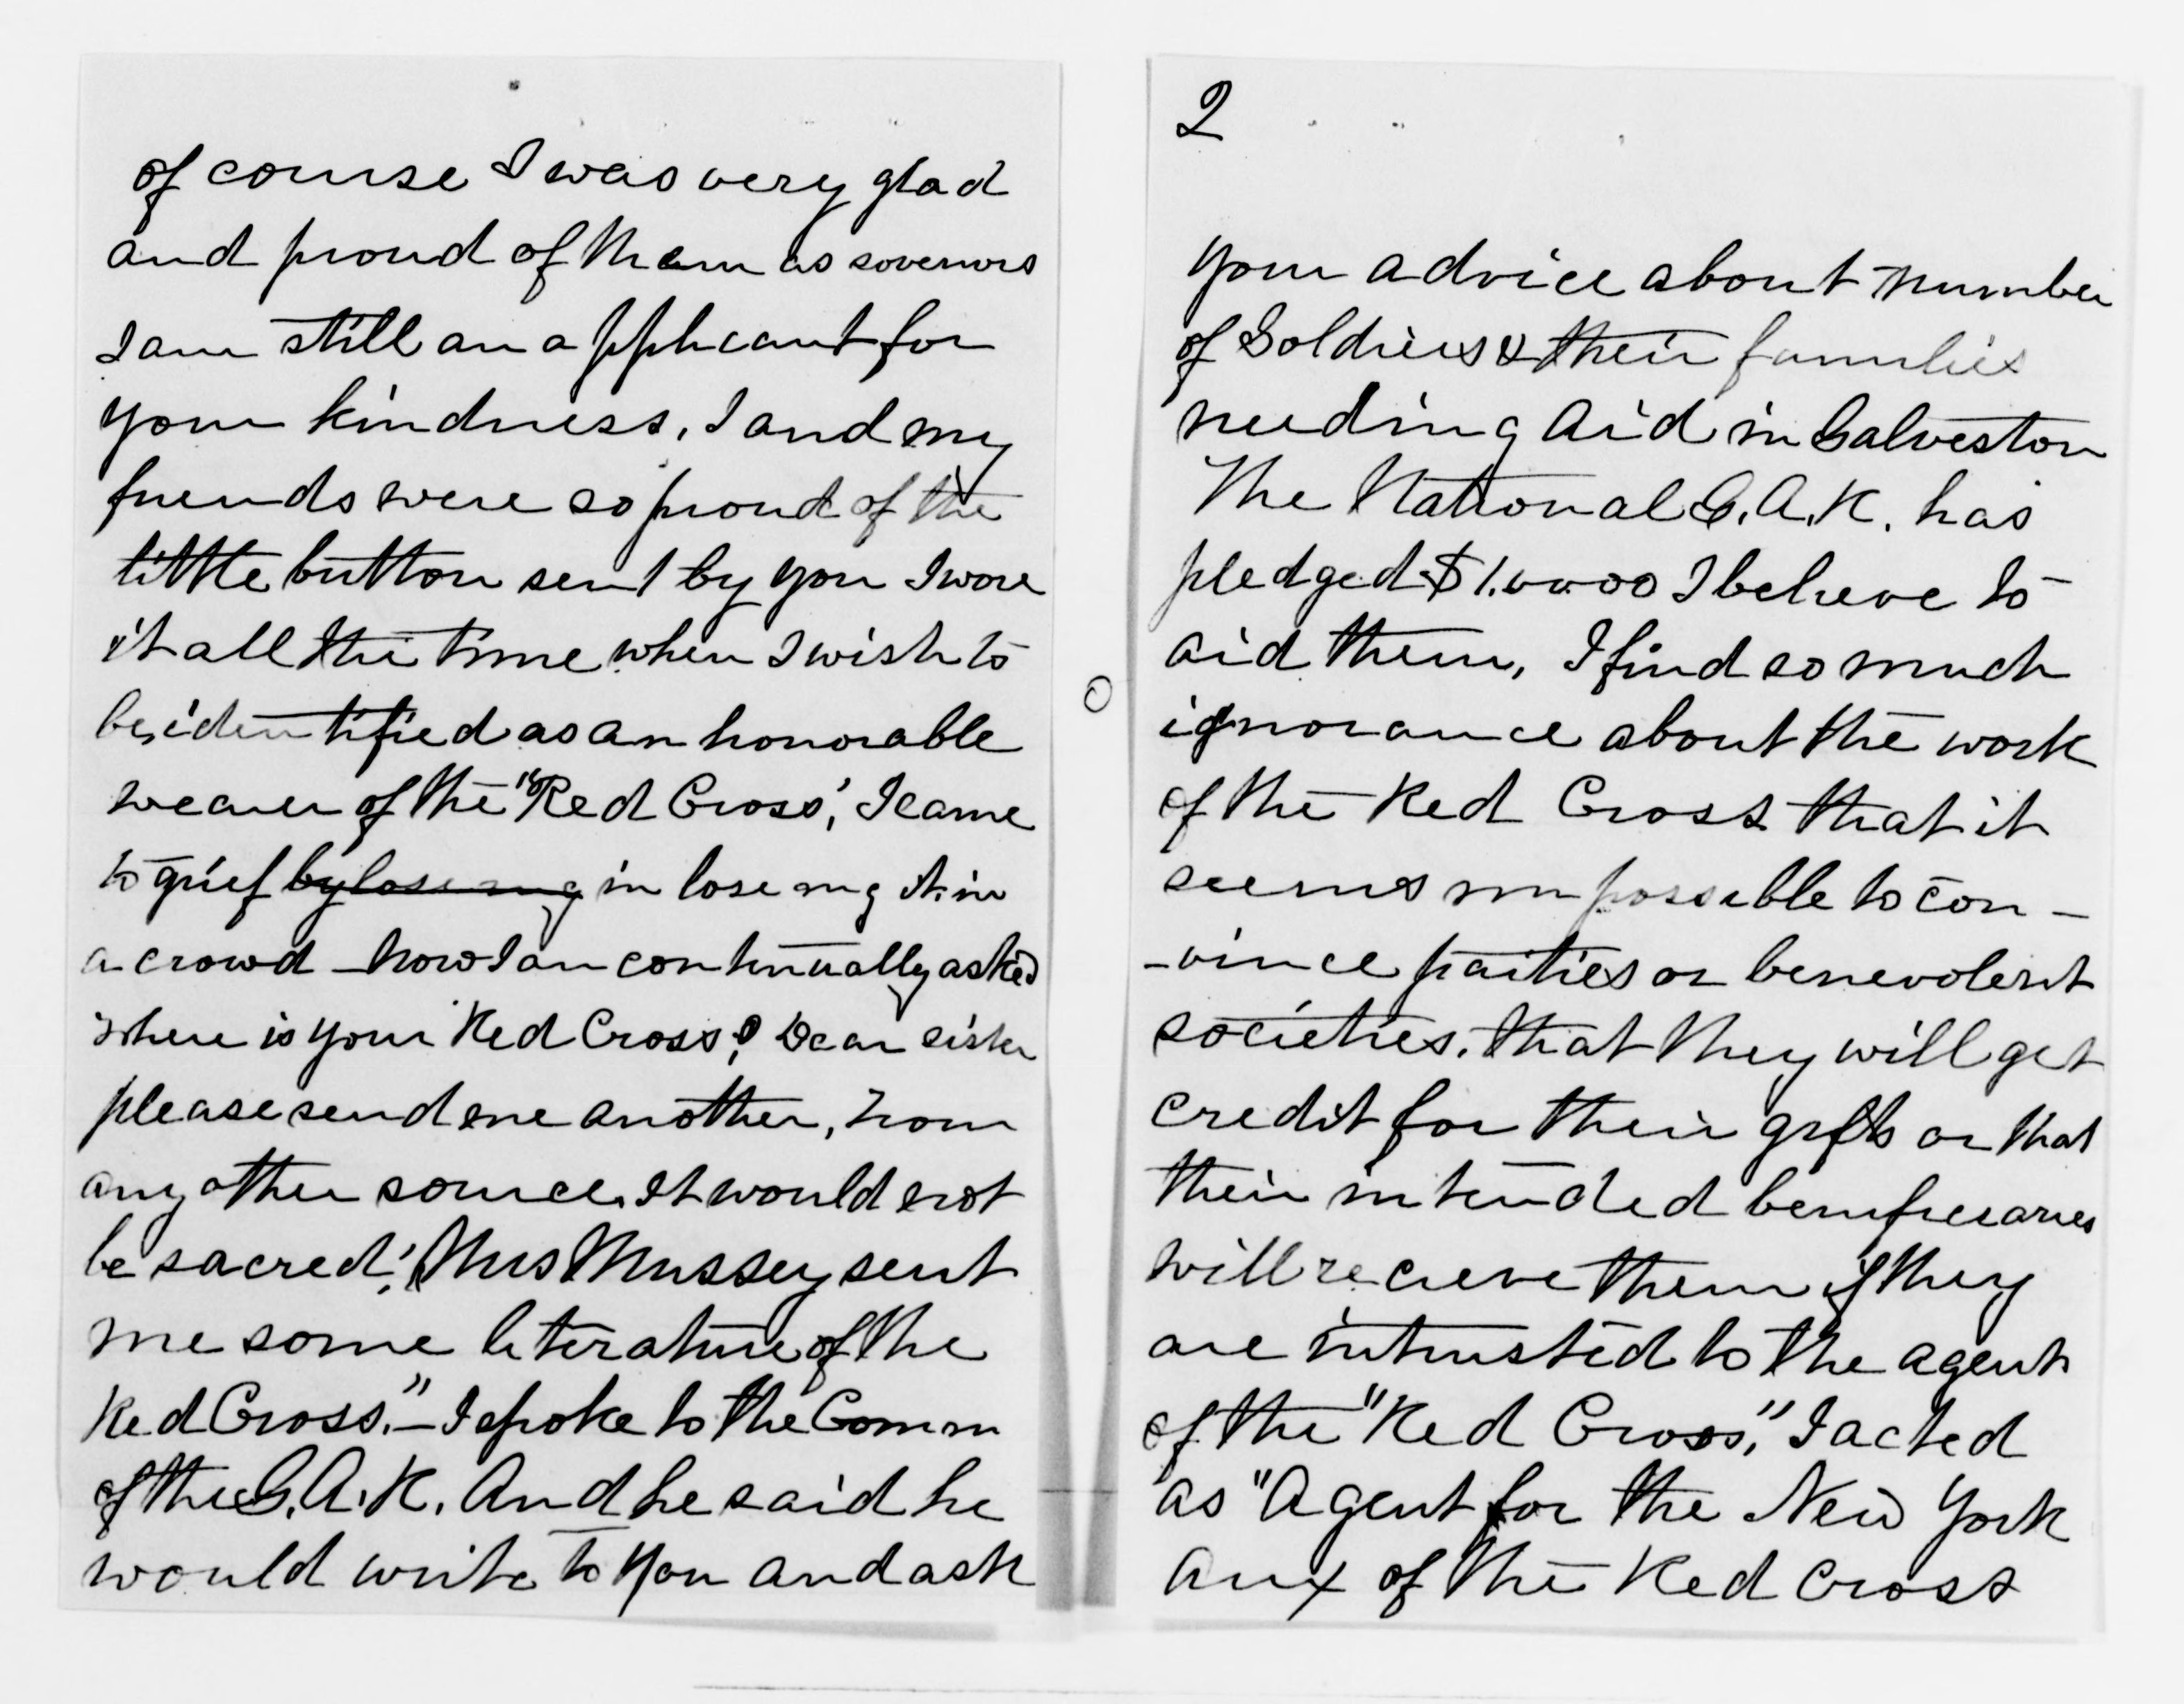 of course I was very glad
and proud of them as sovenirs
I am still an applicant for
your kindness, I and my
friends were so proud of the
little button sent by you I wore
it all the time when I wish to
be identified as an honorable
wearer of the "Red Cross", I came
to grief by loseing in loseing it in
a crowd – now I am continually asked
where is your Red Cross? Dear sister
please send me another, from
any other source. It would not
be sacred! Mrs Mussey sent
me some literature of the
Red Cross." – I spoke to the Comm
of the G.A.R. And he said he
would write to you and ask
2
your advice about number
of Soldiers & their families
needing Aid in Galveston
The National G.A.R. has
pledged I believe to
aid them, I find so much
ignorance about the work
of the Red Cross that it
seems impossible to con-
-vince parties or benevolent
societies. that they will get
credit for their gifts or that
their intended benificiaries
will recieve them if they
are intrusted to the agent
of the "Red Cross," I acted
as "Agent for the New York
Aux of the Red Cross